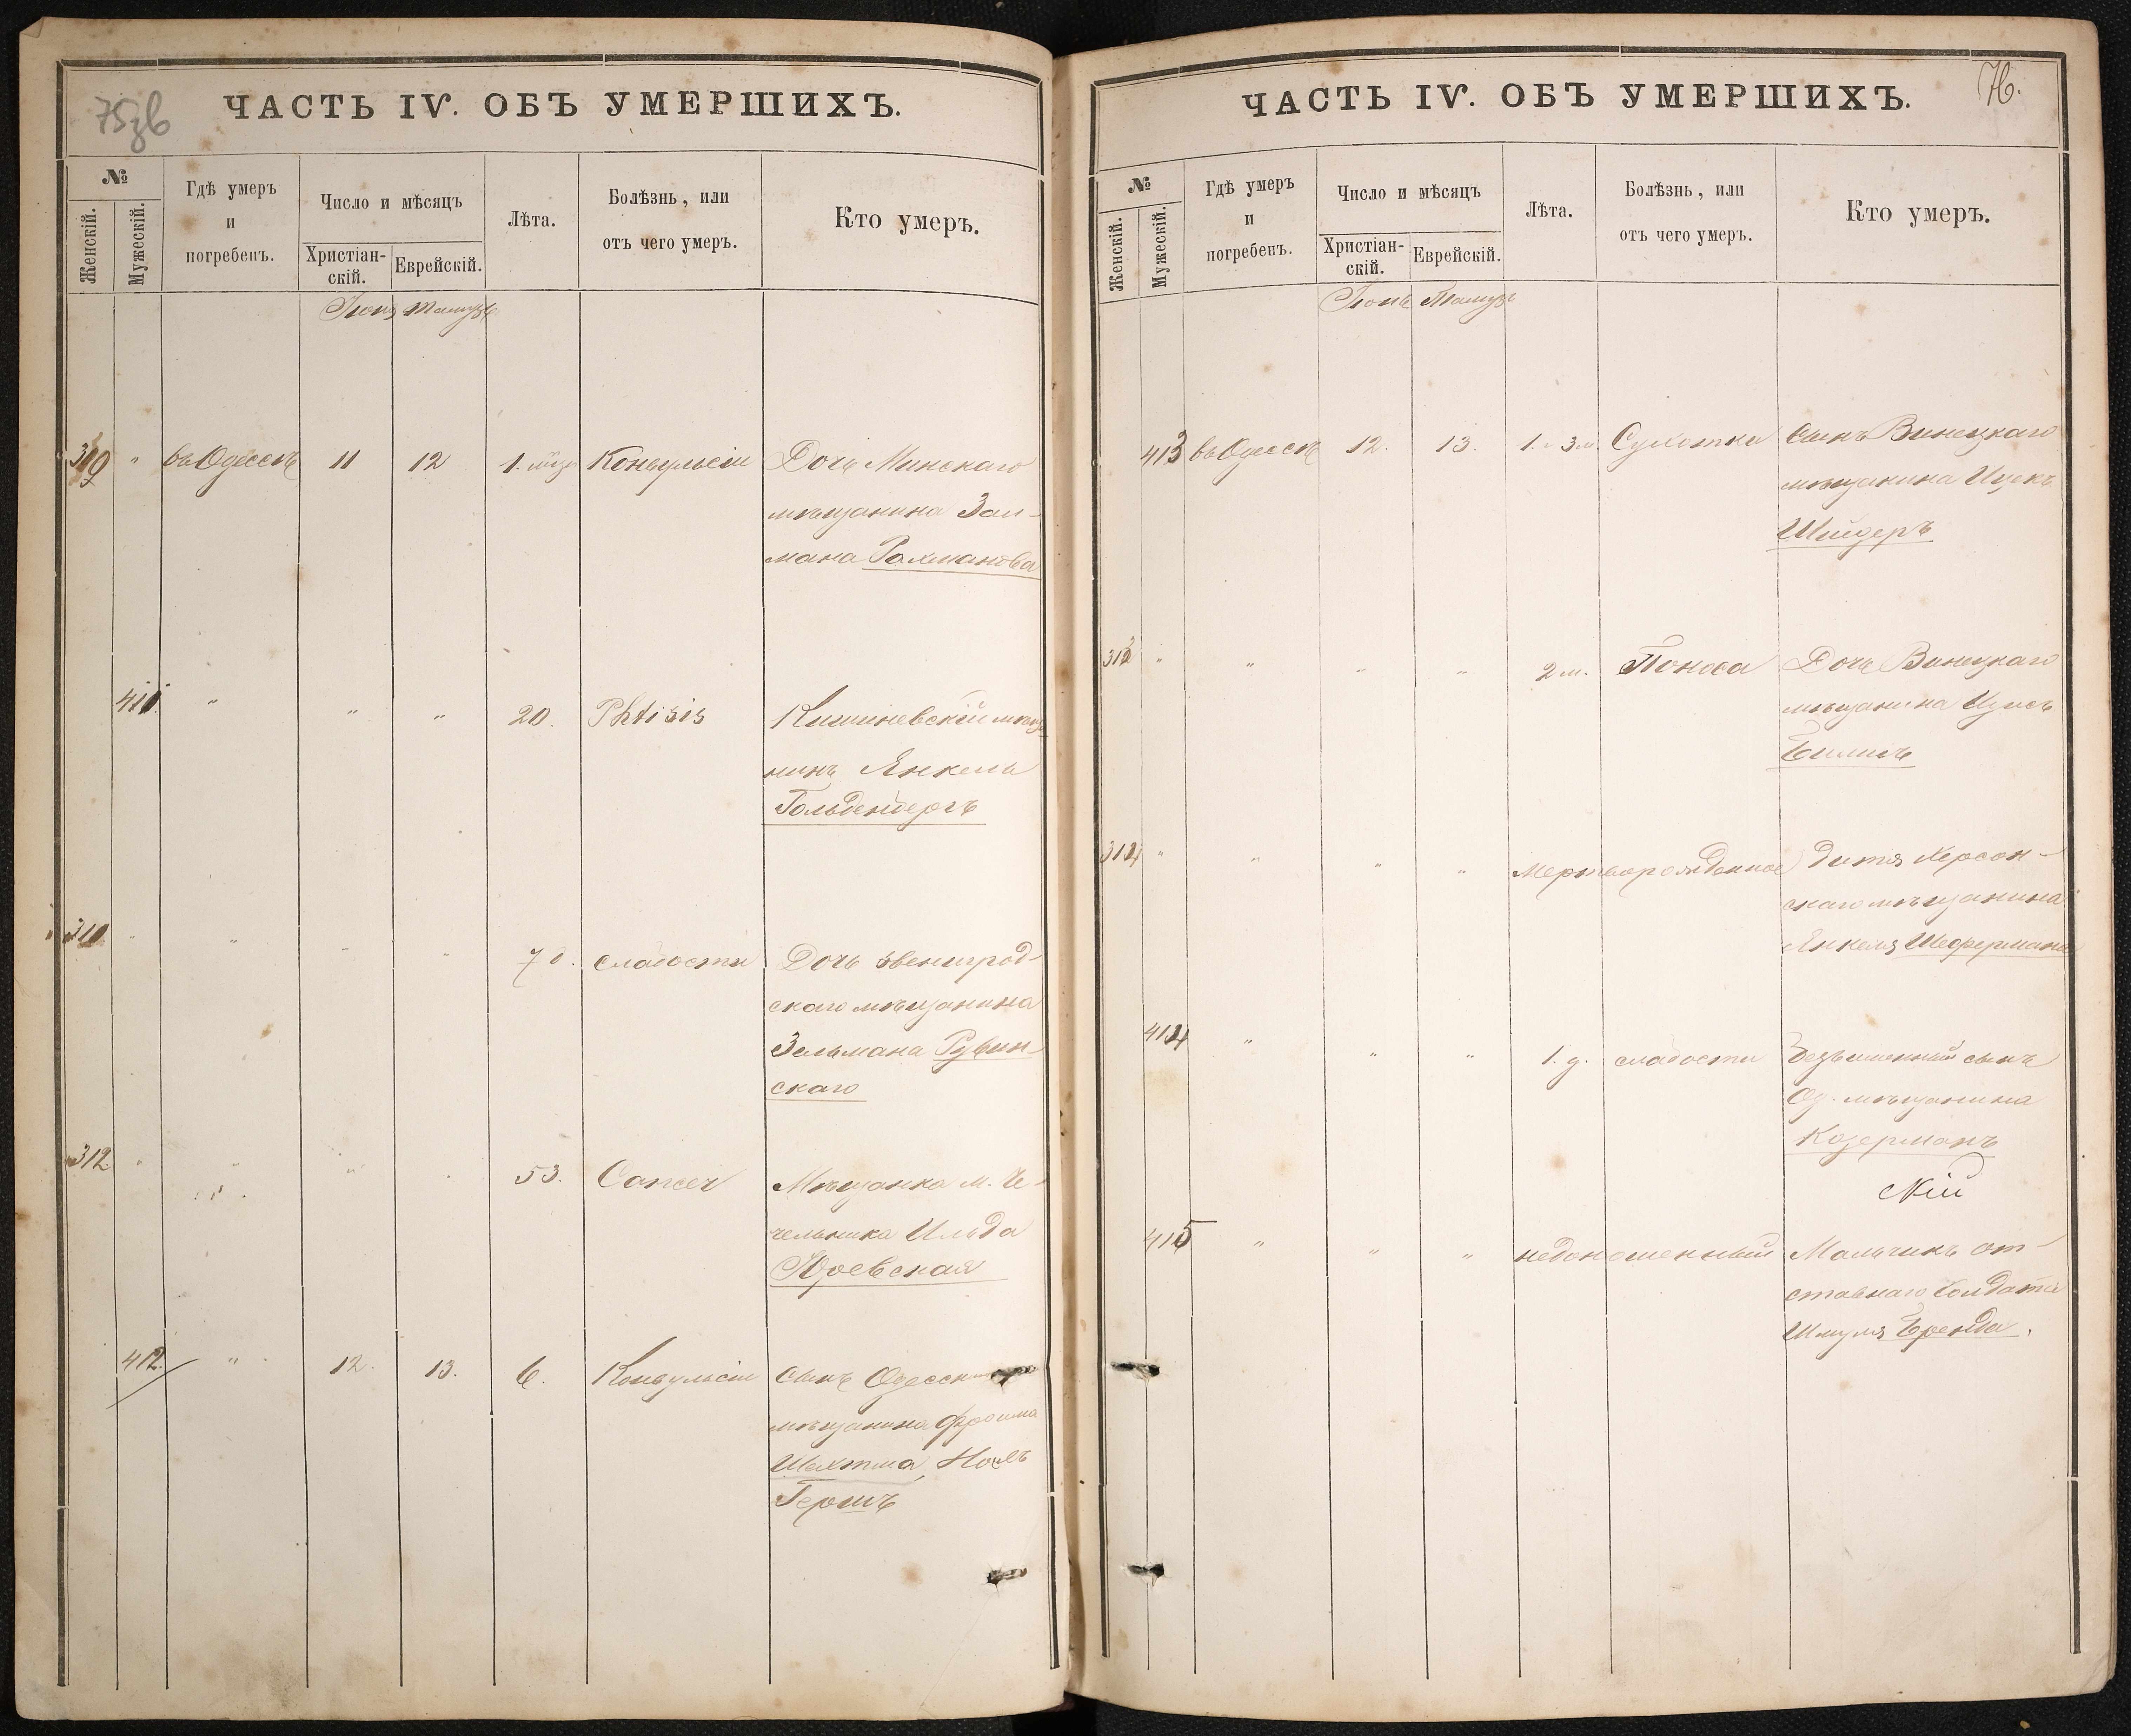 75зв
ЧАСТЬ IV. ОБЪ УМЕРШИХЪ.
№
Женскій.
Мужескій.
Гдѣ умеръ
и
погребенъ.
Число и мѣсяцъ
Христіан-
скій.
Еврейскій.
Лѣта.
Болѣзнь, или
отъ чего умеръ.
Кто умеръ.
Іюня Тамузъ
" въ Одессѣ 11 12 1. Конвульсіи Дочь Минскаго
мѣщанина Зал-
мана Рохманова
411 " " " 20. Phtisis Кишиневскій мѣща
нинъ Янкель
Гольденбергъ
310 " " " " 70. слабости Дочь Звенигрод-
скаго мѣщанина
Зельмана Рувин-
скаго
312 " " " " 53. Cancer Мѣщанка м. Че-
чельника
412. " 12. 13. 6. Конвульсіи сынъ
мѣщанина Фроима
Шахтма
Гершъ
76.
ЧАСТЬ IV. ОБЪ УМЕРШИХЪ.
№
Женскій.
Мужескій.
Гдѣ умеръ
и
погребенъ.
Число и мѣсяцъ
Христіан-
скій.
Еврейскій.
Лѣта.
Болѣзнь, или
отъ чего умеръ.
Кто умеръ.
Іюнь Тамузъ
413 въ Одессѣ 12. 13. Сухотки сынъ Винецкаго
мѣщанина Ицекъ
" " " " 2 м. Поноса Дочь Винецкаго
мѣщанина
314 " " " " Мерьтворожденное Дитя Херсон-
скаго мѣщанина
Янкеля Шефермана
414 " " " 1. д. слабости безъименный сынъ
Од. мѣщанина
Козерманъ
скій
415 " " " недоношенный Мальчикъ от-
ставнаго солдата
Шмуля Бренда.